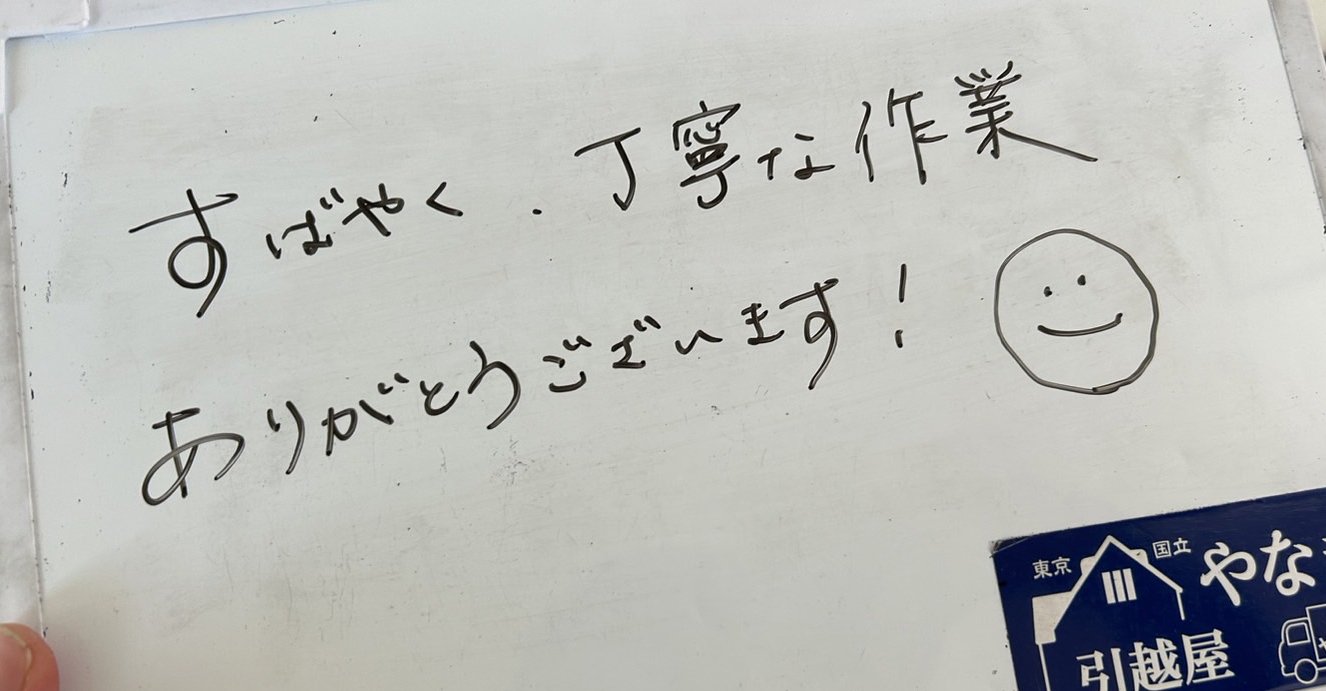 すばやく、丁寧な作業
ありがとうございます!
東京 国立 やな
引越屋